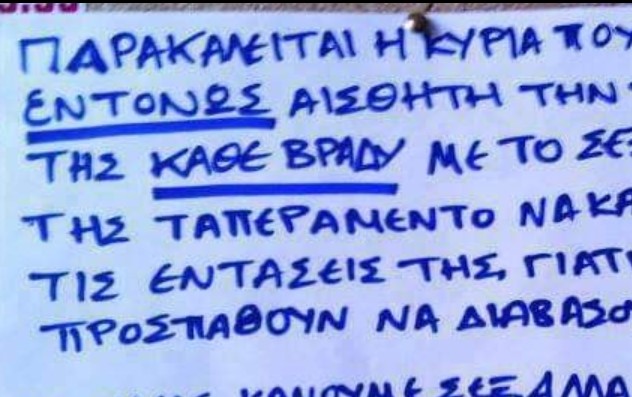 ΠΑΡΑΚΑΛΕΙΤΑΙ Η ΚΥΡΙΑ ΠΟΥ
ΕΝΤΟΝΩΣ ΑΙΣΘΗΤΗ ΤΗΝ
ΤΗΣ ΚΑΘΕ ΒΡΑΔΥ ΜΕ ΤΟ ΣΕΞ
ΤΗΣ ΤΑΠΕΡΑΜΕΝΤΟ ΝΑ ΚΑ
ΤΙΣ ΕΝΤΑΣΕΙΣ ΤΗΣ, ΓΙΑΤΙ
ΠΡΟΣΠΑΘΟΥΝ ΝΑ ΔΙΑΒΑΣΟ
ΚΑΝΟΥΜΕ ΣΕΞ ΑΛΛΑ